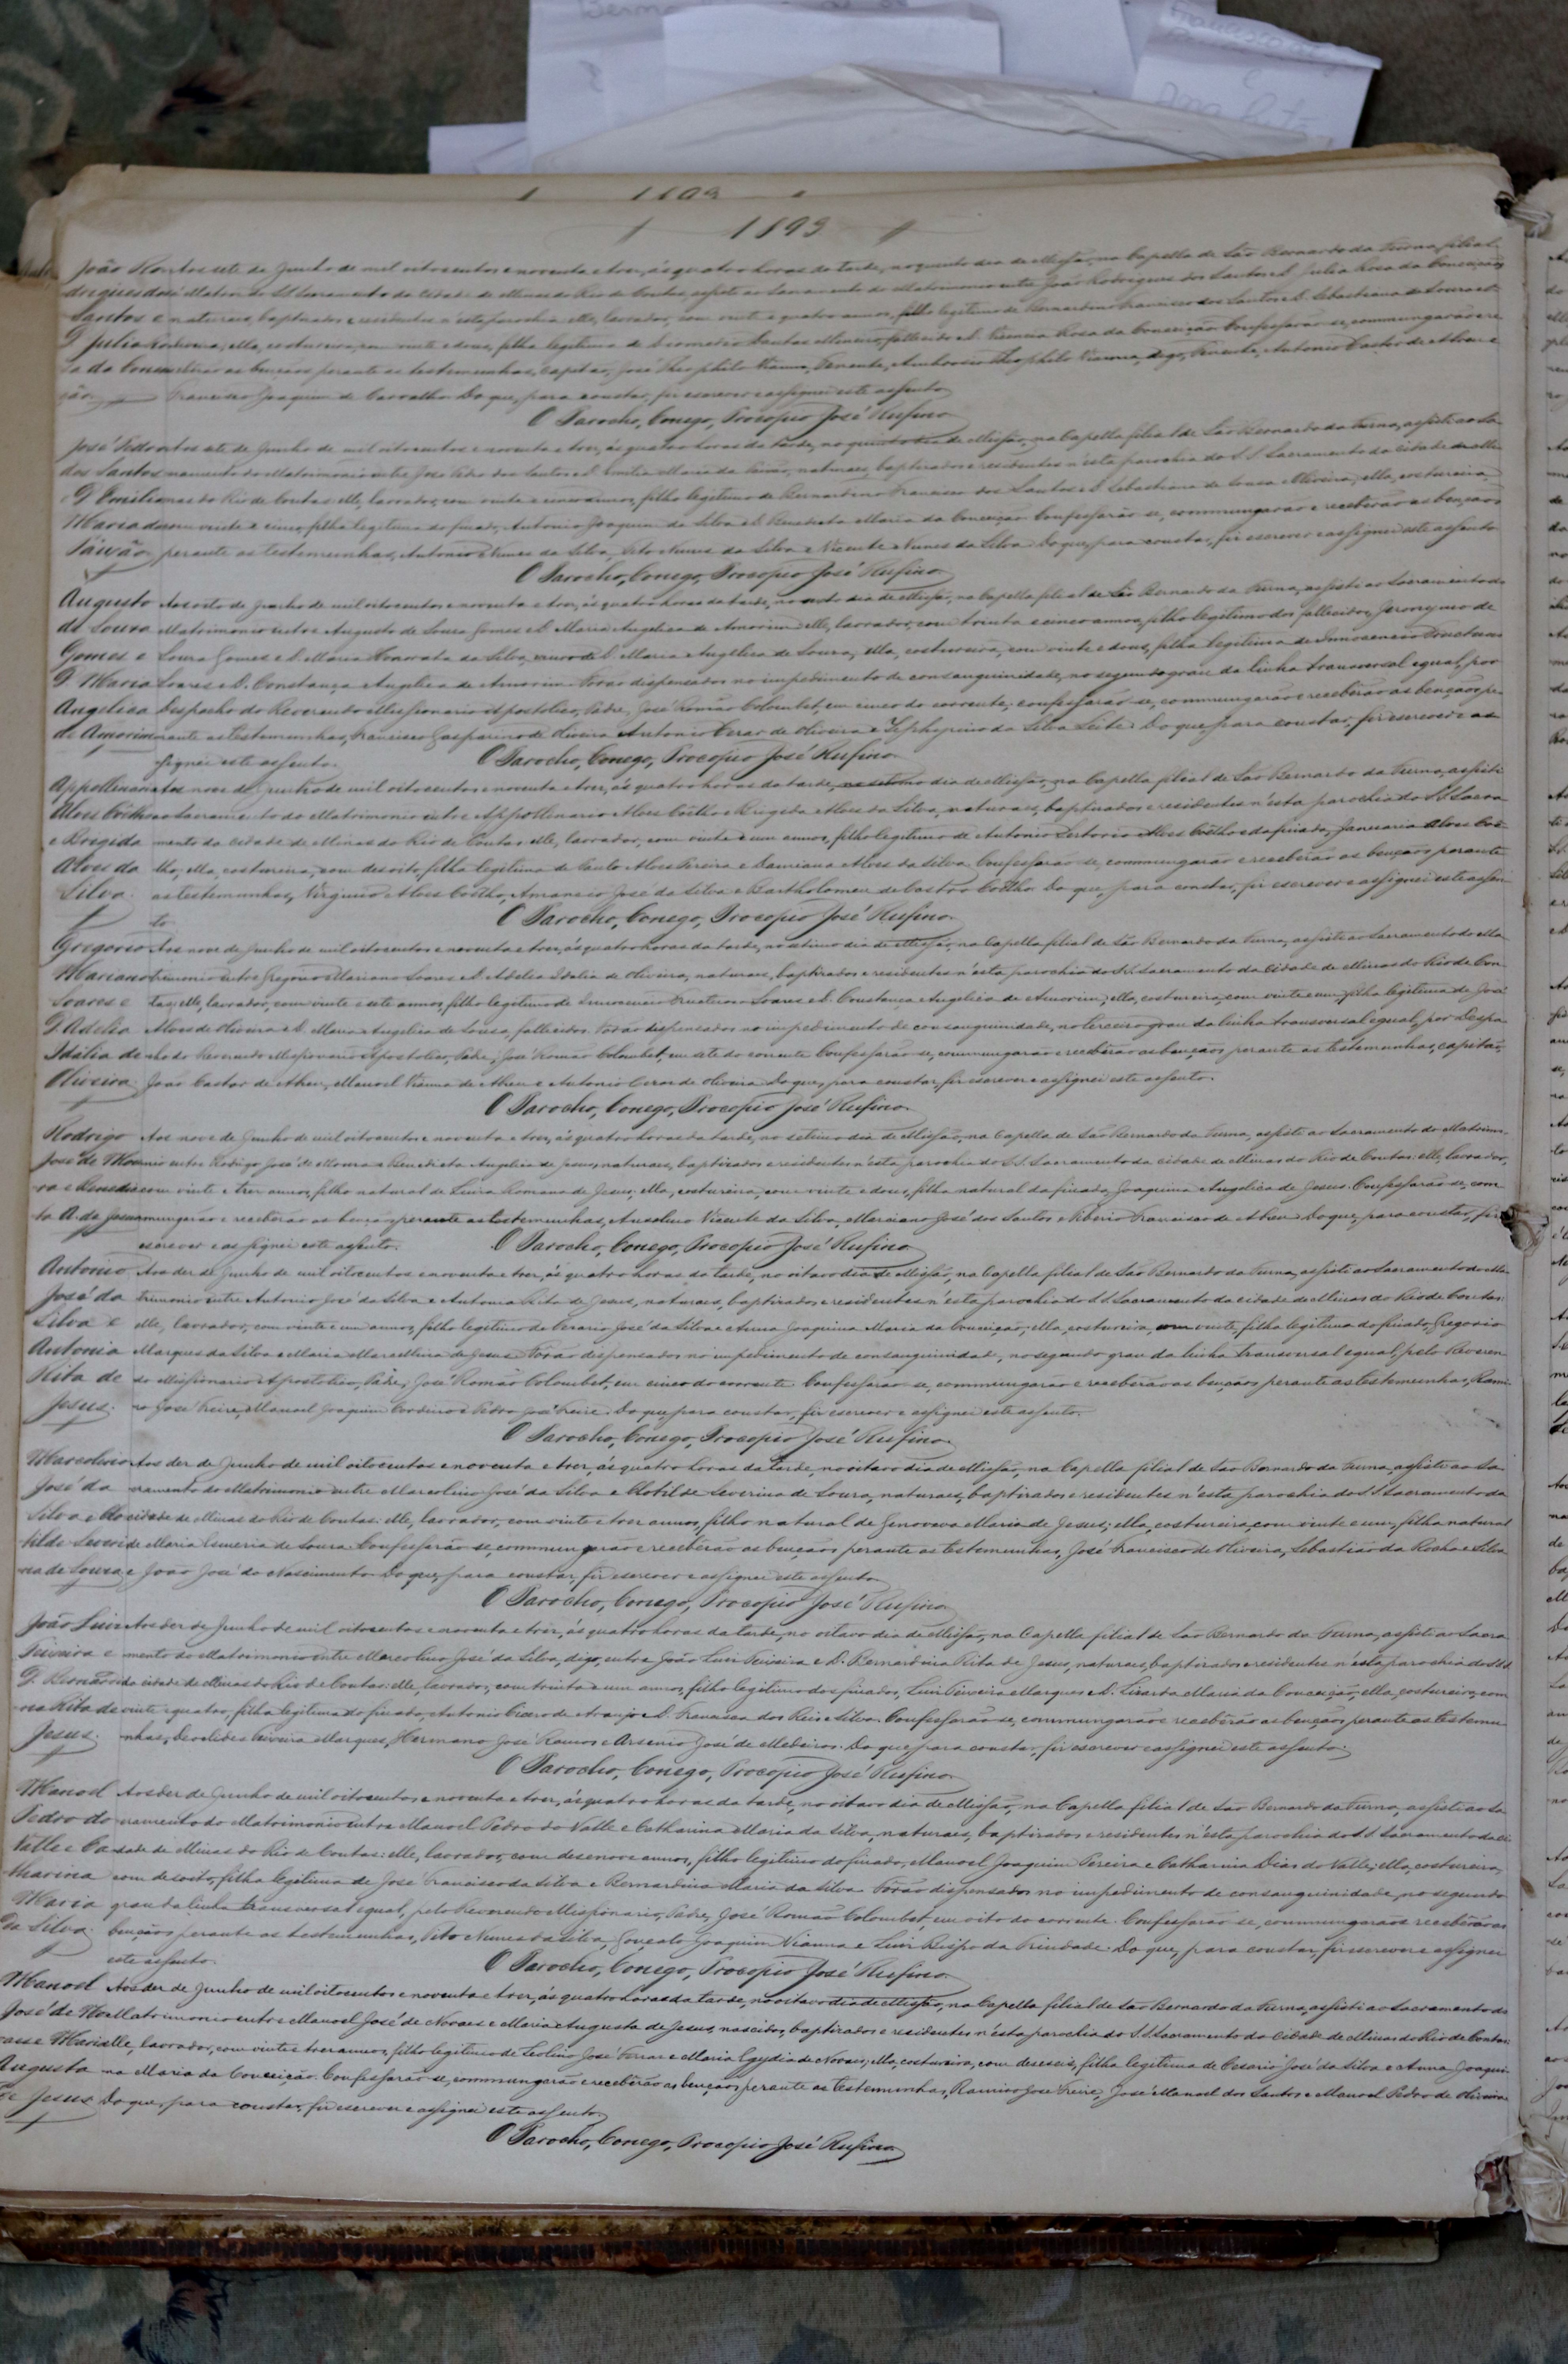 1893
João Ro Aos sete de Junho de mil oitocentos e noventa e tres, ás quatro horas da tarde, no quinto dia de Missão, na Capella de São Bernardo da Furna, filial
drigues dos da Matriz do SS Sacramento da cidade de Minas do Rio de Contas, assisti ao Sacramento do Matrimonio entre João Rodrigues dos Santos e D. Julia Rosa da Conceição
Santos e naturaes, baptisados e residentes n'esta parochia elle, lavrador, com vinte e quatro annos, filho legitimo de Bernardino Francisco dos Santos e D. Sebastiana de Souza
D Julia Ro ella, costureira, com vinte e dous, filha legitima de Santos fallecido e D. Rosa da Conceição Confessarão-se, commungarão e re
sa da Concei ceberão as bençãos perante as testemunhas, Capitão, José Theophilo Vianna, Tenente, Theophilo Vianna, digo, Tenente, Antonio Castor de Abreu e
ção Francisco Joaquim de Carvalho Do que, para constar, fiz escrever e assignei este assento
O Parocho, Conego, Procopio José Rufino
José Pedro Aos sete de Junho de mil oitocentos e noventa e tres, ás quatro horas da tarde, no quinto dia de Missão, na Capella filial de São Bernardo da Furna, assisti ao Sa
dos Santos cramento do Matrimonio entre José Pedro dos Santos e D. Emilia Maria da Paixão, naturaes, baptisados e residentes n'esta parochia do S.S. Sacramento da cidade de Mi
D Emilia nas do Rio de Contas elle, lavrador, com vinte e cinco annos, filho legitimo de Bernardino Francisco dos Santos e D. Sebastiana de Souza Oliveira, ella, costureira,
Maria da com vinte e cinco, filha legitima do finado, Antonio Joaquim da Silva e D. Benedicta Maria da Conceição Confessarão-se, commungarão e receberão as bençãos
Paixão perante as testemunhas, Antonio Nunes da Silva, Tito Nunes da Silva e Vicente Nunes da Silva Do que, para constar, fiz escrever e assignei este assento
O Parocho, Conego, Procopio José Rufino
Augusto Aos oito de Junho de mil oitocentos e noventa e tres, ás quatro horas da tarde, no sexto dia de Missão, na Capella filial de São Bernardo da Furna, assisti ao Sacramento do
de Souza Matrimonio entre Augusto de Souza Gomes e D. Maria Angelica de Amorim elle, lavrador, com trinta e cinco annos, filho legitimo dos fallecidos, Jeronymo de
Gomes e Souza Gomes e D. Maria Honorata da Silva, viuvo de D. Maria Angelica de Souza; ella, costureira, com vinte e dous, filha legitima de Innocencio Fructuoso
D. Maria Soares e D. Constança Angelica de Amorim Forão dispensados no impedimento de consanguinidade, no segundo grau da linha transversal egual, por
Angelica Despacho do Reverendo Missionario Apostolico, Padre, José Romão Colombet, em cinco do corrente, confessarão-se, commungarão e receberão as bençãos pe
de Amorim rante as testemunhas, Francisco Gasparino de Oliveira Antonio Cezar de Oliveira e Zephyrino da Silva Leite. Do que para constar, fiz escrever e as
signei este assento. O Parocho, Conego, Procopio José Rufino
Appollinario Aos nove de Junho de mil oitocentos e noventa e tres, ás quatro horas da tarde, no setimo dia de Missão, na Capella filial de São Bernardo da Furna, assisti
Alves Coêlho ao Sacramento do Matrimonio entre Appollinario Alves Coêlho e Brigida Alves da Silva, naturaes, baptisados e residentes n'esta parochia do S.S. Sacra
e Brigida mento da cidade de Minas do Rio de Contas elle, lavrador, com vinte e um annos, filho legitimo de Antonio Sertorio Alves Coêlho e da finada, Januaria Alves Coê
Alves da lho, ella, costureira, com desoito, filha legitima de Paulo Alves Pereira e Damiana Alves da Silva. Confessarão-se, commungarão e receberão as bençãos perante
Silva. as testemunhas, Virginio Alves Coêlho, Amancio José da Silva e Bartholomeu de Castro Coêlho Do que, para constar, fiz escrever e assignei este assen
to O Parocho, Conego, Procopio José Rufino.
Gregorio Aos nove de Junho de mil oitocentos e noventa e tres, ás quatro horas da tarde, no setimo dia de Missão, na Capella filial de São Bernardo da Furna, assisti ao Sacramento do Ma
Mariano trimonio entre Gregorio Mariano Soares e D. Adelia Idalia de Oliveira, naturaes, baptisados e residentes n'esta parochia do S.S. Sacramento da cidade de Minas do Rio de Con
Soares e tas; elle, lavrador, com vinte e sete annos, filho legitimo de Innocencio Fructuoso Soares e D. Constança Angelica de Amorim; ella, costureira, com vinte e um, filha legitima de José
D. Adelia Alves de Oliveira e D. Maria Angelica de Souza, fallecidos. Forão dispensados no impedimento de consanguinidade, no terceiro grau da linha transversal egual, por Despa
Idália de cho do Reverendo Missionario Apostolico, Padre, José Romão Colombet, em sete do corrente Confessarão-se, commungarão e receberão as bençãos perante as testemunhas, capitão,
Oliveira João Castor de Abreu, Manoel Vianna de Abreu e Antonio Cezar de Oliveira Do que, para constar, fiz escrever e assignei este assento.
O Parocho, Conego, Procopio José Rufino.
Rodrigo Aos nove de Junho de mil oitocentos e noventa e tres, ás quatro horas da tarde, no setimo dia de Missão, na Capella de São Bernardo da Furna, assisti ao Sacramento do Matrimo
José de Mou nio entre Rodrigo José de Moura e Benedicta Angelica de Jesus, naturaes, baptisados e residentes n'esta parochia do S.S. Sacramento da cidade de Minas do Rio de Contas: elle, lavrador,
ra e Benedic com vinte e tres annos, filho natural de Romana de Jesus: ella, costureira, com vinte e dous, filha natural da finada, Joaquina Angelica de Jesus. Confessarão-se, com
ta A. de Jesus mungarão e receberão as bençãos perante as testemunhas, Anselmo Vicente da Silva, Marciano José dos Santos e Tiberio Francisco de Abreu Do que, para constar, fiz
escrever e assignei este assento. O Parocho, Conego, Procopio José Rufino
Antonio Aos dez de Junho de mil oitocentos e noventa e tres, ás quatro horas da tarde, no oitavo dia de Missão, na Capella filial de São Bernardo da Furna, assisti ao Sacramento do Ma
José da trimonio entre Antonio José da Silva e Antonia Rita de Jesus, naturaes, baptisados e residentes n'esta parochia do S.S. Sacramento da cidade de Minas do Rio de Contas:
Silva e elle, lavrador, com vinte e um annos, filho legitimo de Cezario José da Silva e Anna Joaquina Maria da Conceição; ella, costureira, com vinte, filha legitima do finado, Gregorio
Antonia Marques da Silva e Maria Marcellina de Jesus Forão dispensados no impedimento de consanguinidade, no segundo grau da linha transversal egual, pelo Reveren
Rita de do Missionario Apostolico, Padre, José Romão Colombet, em cinco do corrente. Confessarão-se, commungarão e receberão as bençãos perante as testemunhas, Rami
Jesus. ro José Freire, Manoel Joaquim Cordeiro e Pedro José Freire. Do que para constar, fiz escrever e assignei este assento.
O Parocho, Conego, Procopio José Rufino.
Marcolino Aos dez de Junho de mil oitocentos e noventa e tres, ás quatro horas da tarde, no oitavo dia de Missão, na Capella filial de São Bernardo da Furna, assisti ao Sa
José da cramento do Matrimonio entre Marcolino José da Silva e Clotilde Severina de Souza, naturaes, baptisados e residentes n'esta parochia do S.S. Sacramento da
Silva e Clo cidade de Minas do Rio de Contas: elle, lavrador, com vinte e tres annos, filho natural de Genoveva Maria de Jesus; ella, costureira, com vinte e um, filha natural
tilde Severi de Maria Esmeria de Souza Confessarão-se, commungarão e receberão as bençãos perante as testemunhas, José Francisco de Oliveira, Sebastião da Rocha e Silva
na de Souza e João José do Nascimento Do que, para constar, fiz escrever e assignei este assento
O Parocho, Conego, Procopio José Rufino
João Luiz Aos dez de Junho de mil oitocentos e noventa e tres, ás quatro horas da tarde, no oitavo dia de Missão, na Capella filial de São Bernardo da Furna, assisti ao Sacra
Teixeira e mento do Matrimonio entre Marcolino José da Silva, digo, entre João Luiz Teixeira e D. Bernardina Rita de Jesus, naturaes, baptisados e residentes n'esta parochia do S.S.
D. Bernardi da cidade de Minas do Rio de Contas: elle, lavrador, com trinta e um annos, filho legitimo dos finados, Luiz Teixeira Marques e D. Maria da Conceição; ella, costureira, com
na Rita de vinte e quatro, filha legitima do finado, Antonio Cicero de Araujo e D. Francisca dos Reis e Silva. Confessarão-se, commungarão e receberão as bençãos perante as testemu
Jesus. nhas, Deoclides Teixeira Marques, Hermano José Ramos e Arsenio José de Medeiros. Do que para constar, fiz escrever e assignei este assento.
O Parocho, Conego, Procopio José Rufino.
Manoel Aos dez de Junho de mil oitocentos e noventa e tres, ás quatro horas da tarde, no oitavo dia de Missão, na Capella filial de São Bernardo da Furna, assisti ao Sa
Pedro do cramento do Matrimonio entre Manoel Pedro do Valle e Catharina Maria da Silva, naturaes, baptisados e residentes n'esta parochia do S.S. Sacramento da ci
Valle e Ca dade de Minas do Rio de Contas: elle, lavrador, com desenove annos, filho legitimo do finado, Manoel Joaquim Pereira e Catharina Dias do Valle; ella, costureira,
tharina com desoito, filha legitima de José Francisco da Silva e Bernardina Maria da Silva Forão dispensados no impedimento de consanguinidade, no segundo
Maria grau da linha transversal egual, pelo Reverendo Missionario, Padre, José Romão Colombet, em oito do corrente. Confessarão-se, commungarão e receberão as
da Silva. bençãos perante as testemunhas, Tito Nunes da Silva, Gonçalo Joaquim Vianna e Luiz Bispo da Trindade. Do que, para constar, fiz escrever e assignei
este assento. O Parocho, Conego, Procopio José Rufino.
Manoel Aos dez de Junho de mil oitocentos e noventa e tres, ás quatro horas da tarde, no oitavo dia de Missão, na Capella filial de São Bernardo da Furna, assisti ao Sacramento do
José de No Matrimonio entre Manoel José de Novaes e Maria Augusta de Jesus, nascidos, baptisados e residentes n'esta parochia do S.S. Sacramento da cidade de Minas do Rio de Contas:
vaes e Maria elle, lavrador, com vinte e tres annos, filho legitimo de José Ferraz e Maria Egydia de Novaes; ella, costureira, com deseseis, filha legitima de Cesario José da Silva e Anna Joaqui
Augusta na Maria da Conceição. Confessarão-se, commungarão e receberão as bençãos perante as testemunhas, Ramiro José Freire, José Manoel dos Santos e Manoel Pedro de Oliveira
de Jesus Do que, para constar, fiz escrever e assignei este assento
O Parocho, Conego, Procopio José Rufino